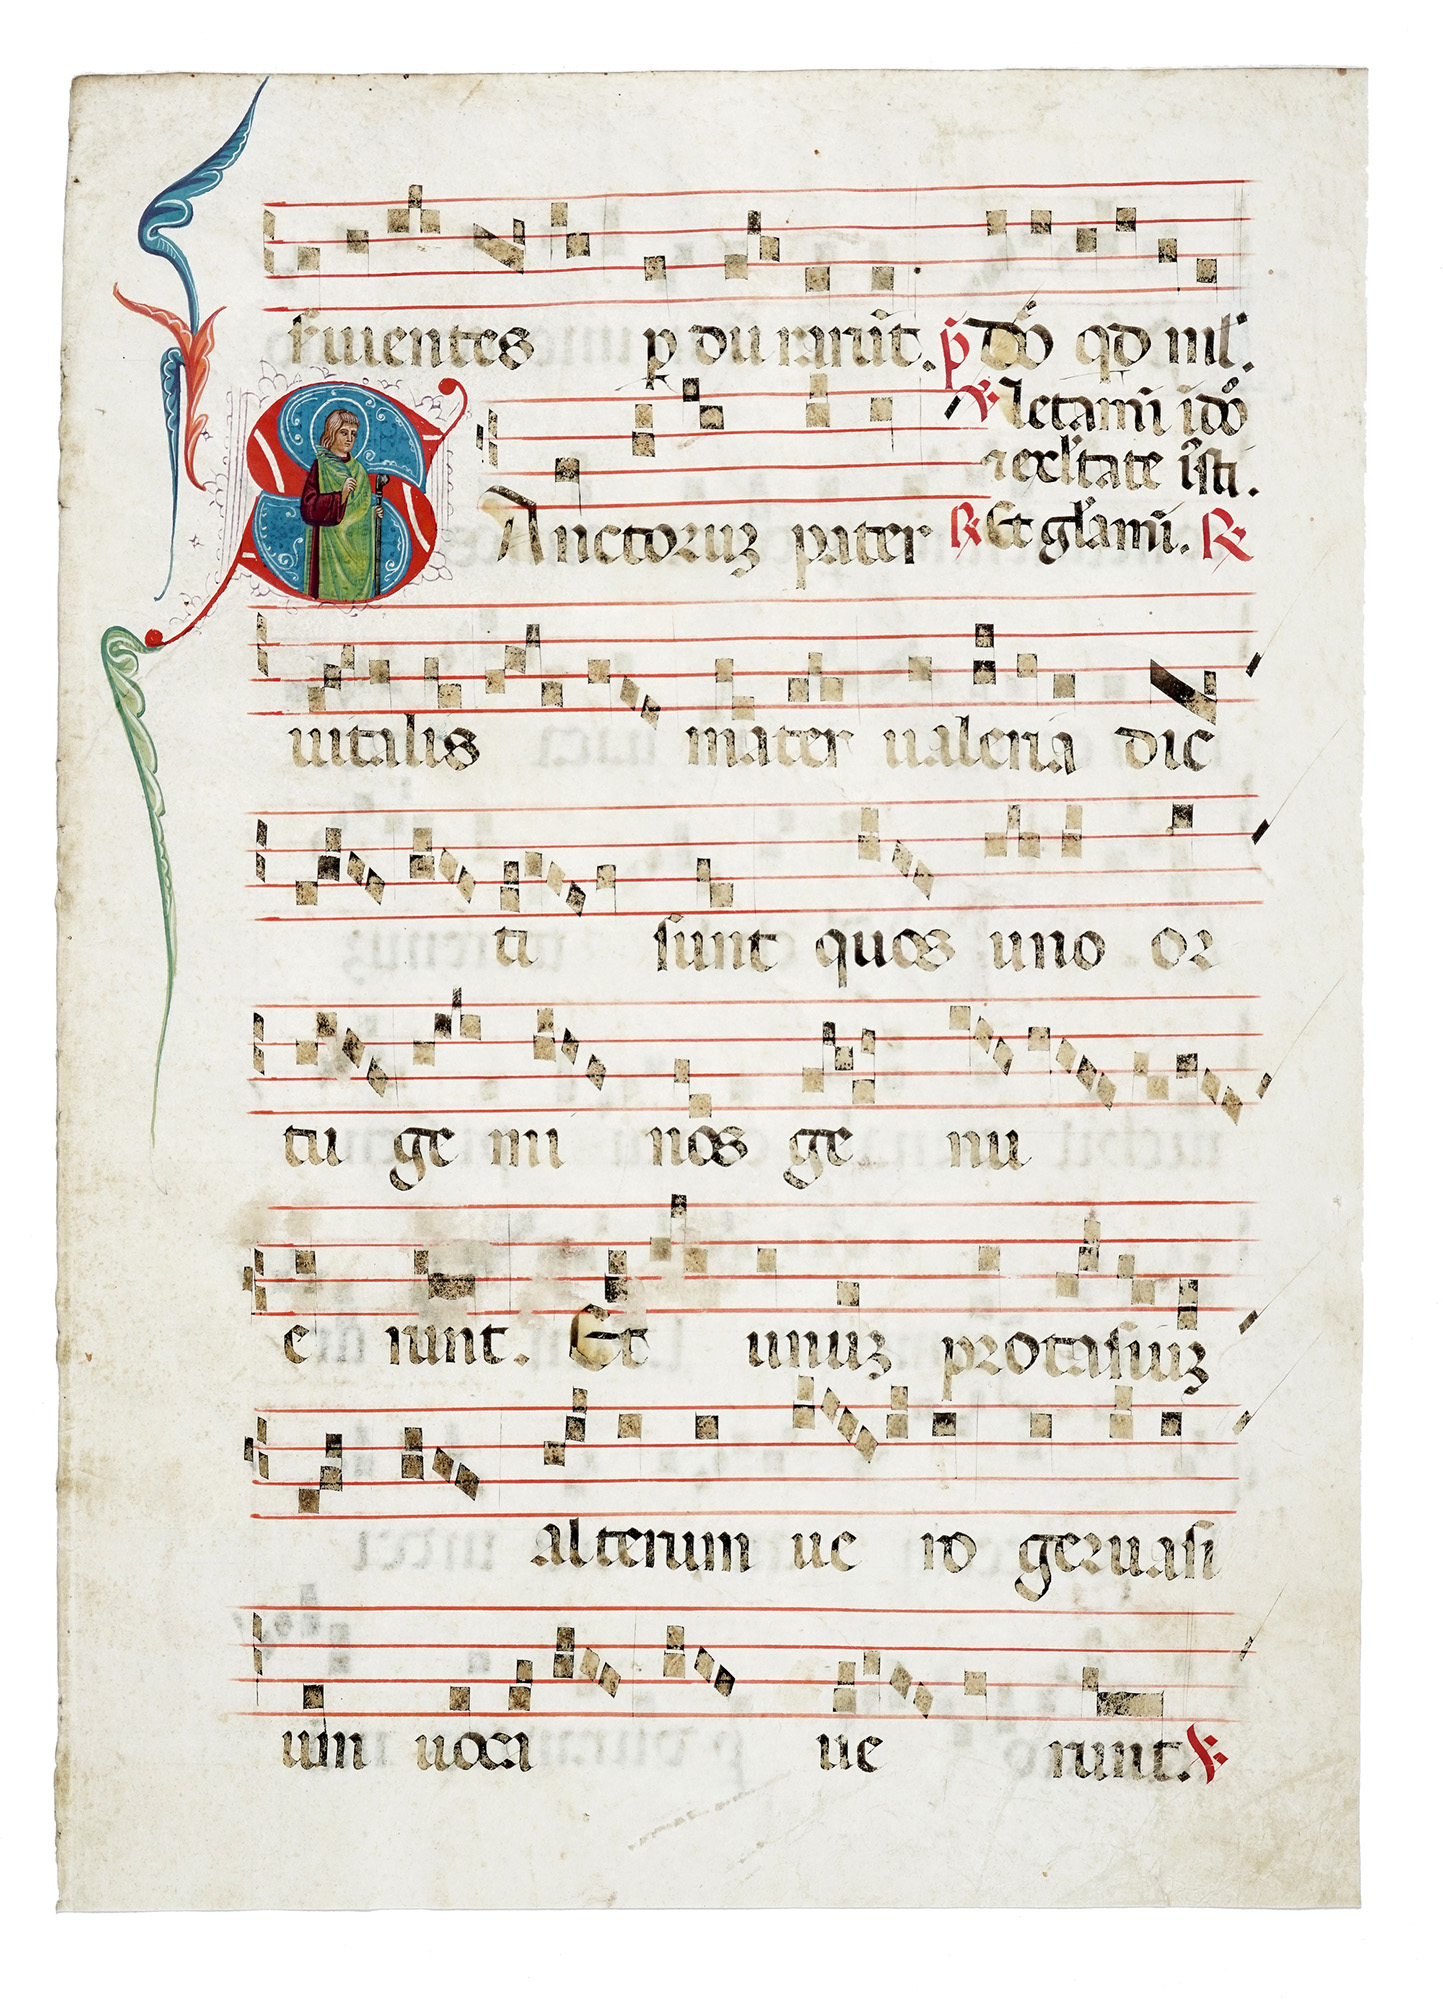 seruientes ꝑ du rarūt. p̄ dōo qd nil.
℣. letamī ī dōo
⁊ exl'tate ī'sti.
SAnctoruꝫ pater ℟ Et gl'amī. ℟
uitalis mater ualeria dic
ti sunt quos uno or
tu ge mi nos ge nu
e runt. Et unuꝫ protasiuꝫ
alterum ue ro geruasi
um uoci ue runt. ℣